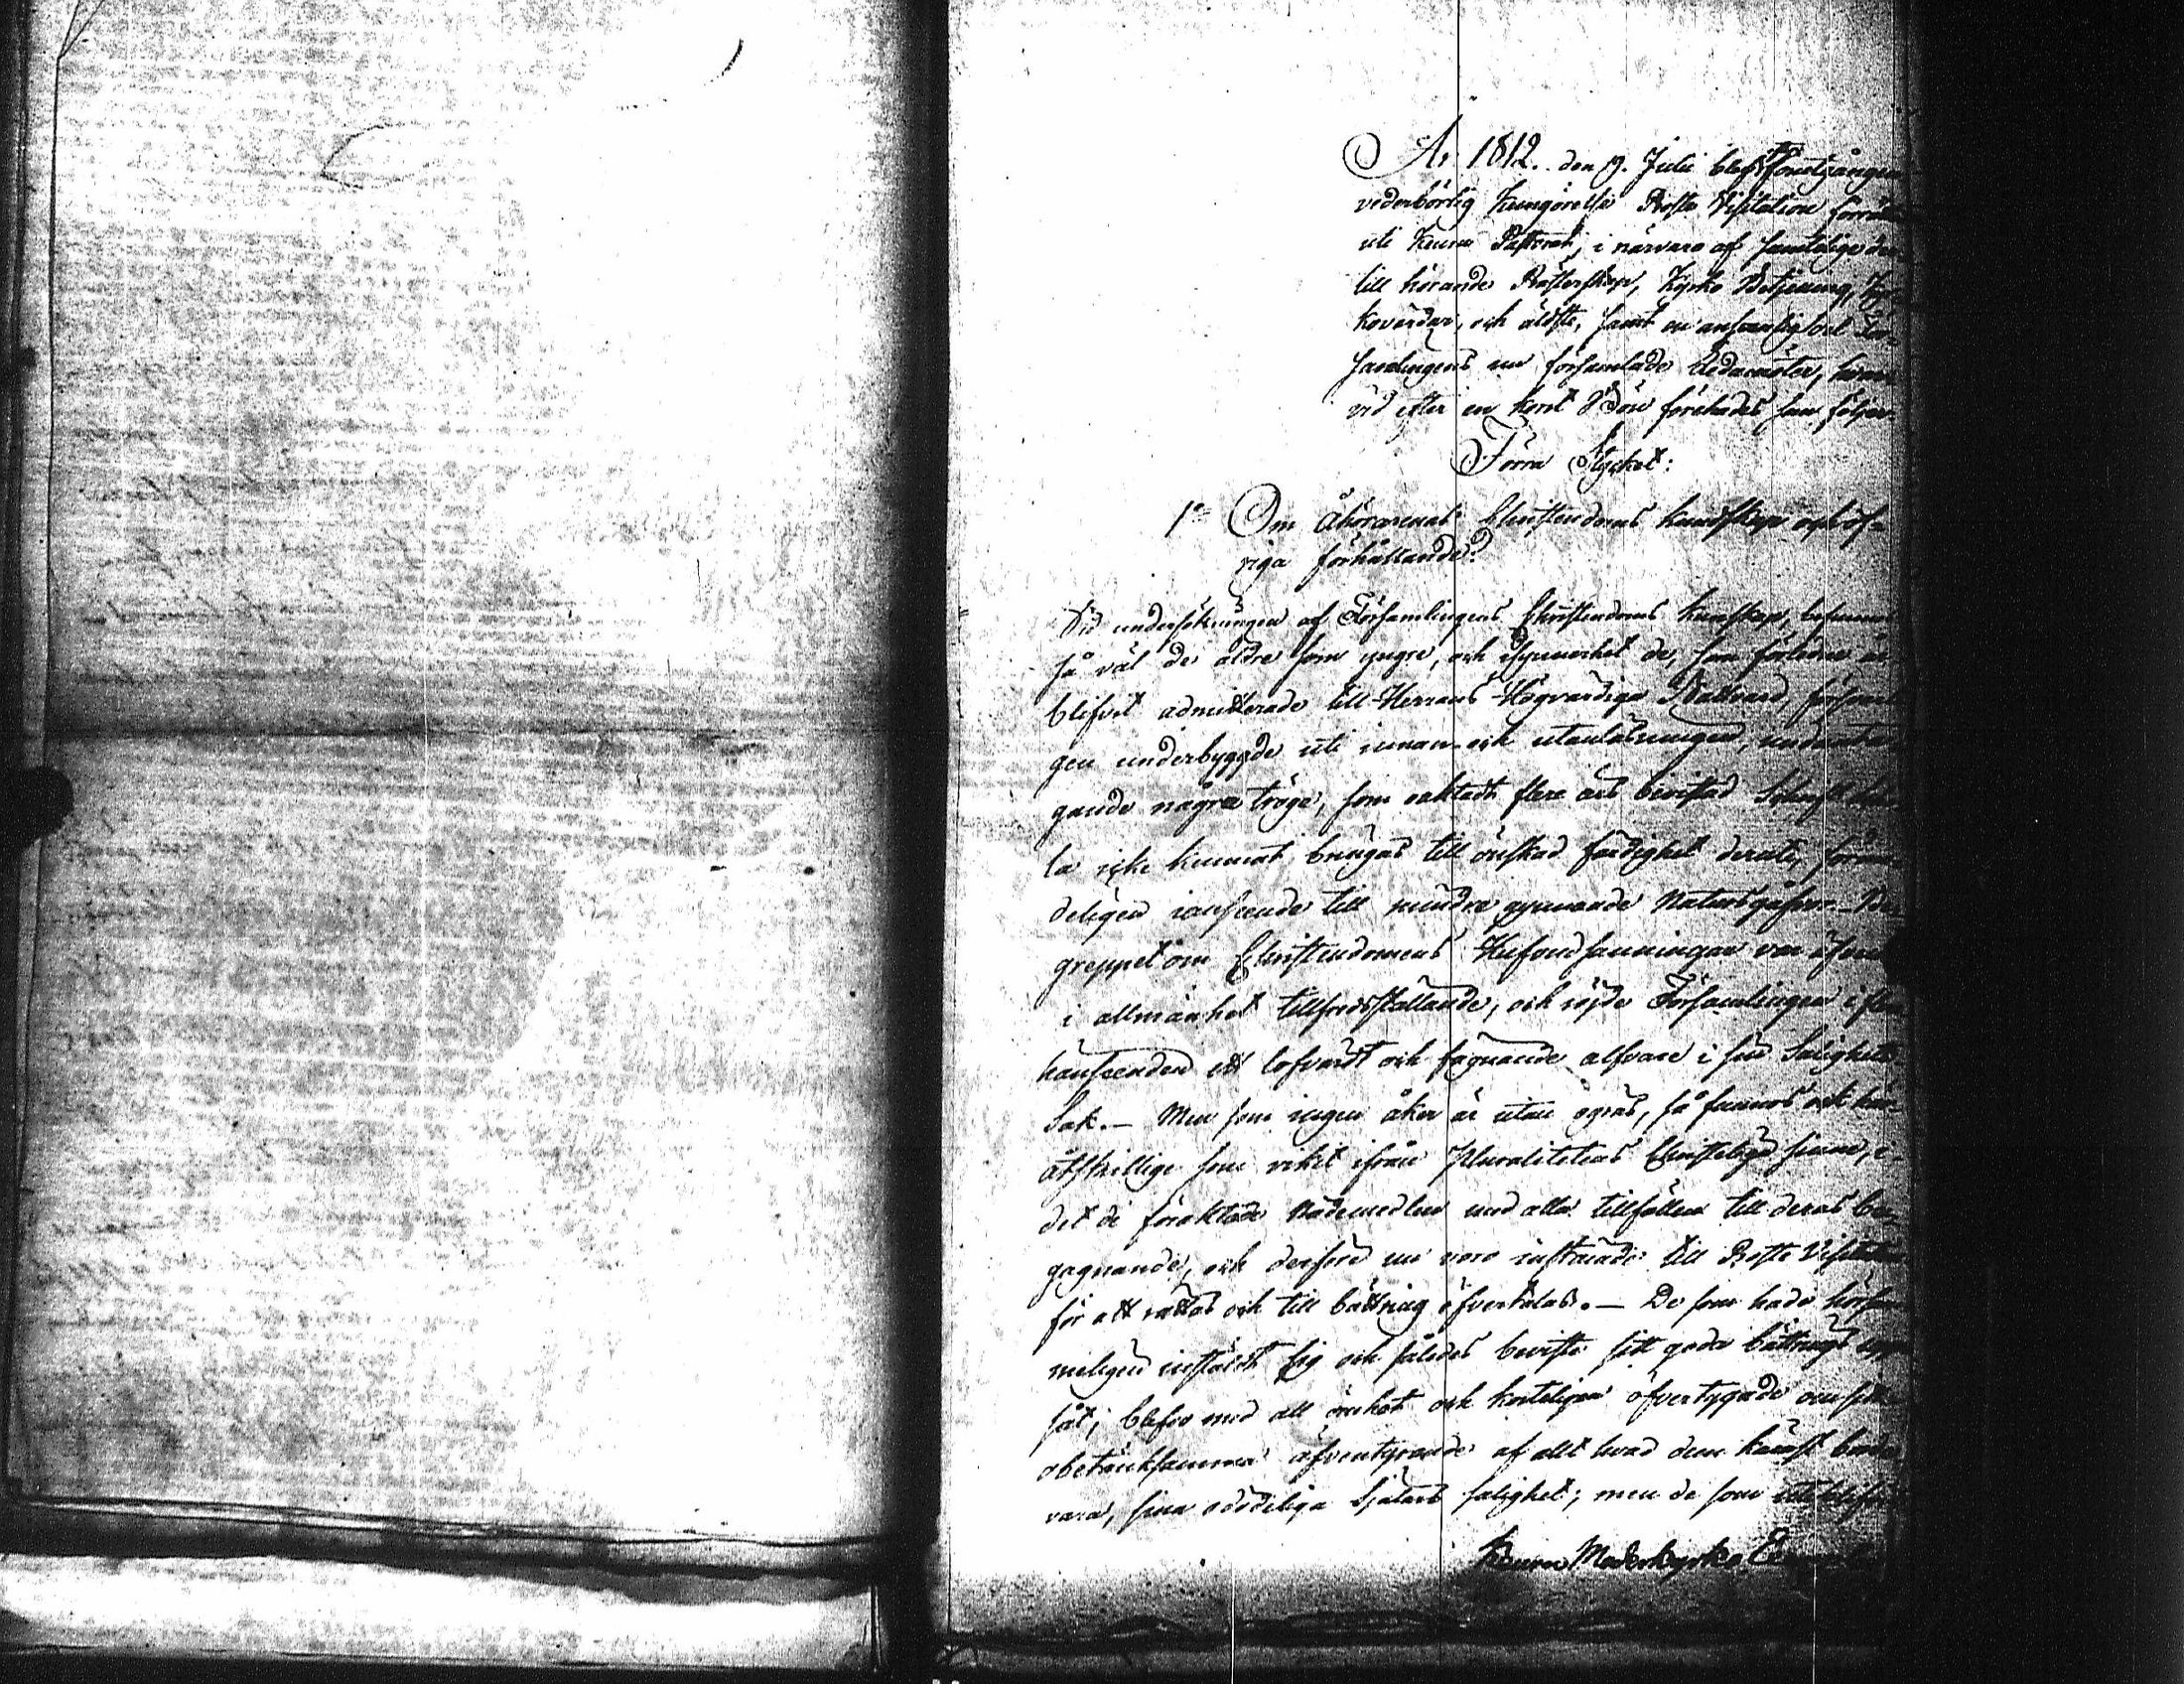 År 1812. den 9. Julii blef, föregången
vederbörlig Kungörelse Prosts Visitation förrättad
uti Keuru Pastorat, i närvaro af samtelige der-
till hörande Presterskap, Kyrko Betjening, Kyr-
kovärdar, och äldste, samt en ansenlig del För-
samlingens nu församlade Ledamöter, hvar-
vid efter en kort Bön förehades som följer
Förra Stycket:
1o Om Åhörarenas Christendoms kundskap och öf-
riga förhållande?
Vid undersökningen af Församlingens Christendoms kunskap, befunnos
så väl de äldre som yngre, och isynnerhet de, som förleden år
blifvit admitterade till Herrans Högvärdiga Nattvard,
gen underbyggde uti innan- och utanläsningen, undanta-
gande några tröge, som oaktadt flere års bivistad
la icke kunnat bringas till önskad färdighet deruti,
deligen i anseende till mindre gynnande Natursgåfvor. - Be-
greppet om Christendomens Hufvudsanningar var äfven
i allmänhet tillfredsställande, och röjde Församlingen i flera
hänseenden ett lofvärdt och fägnande alfvare i sin Salighets
Sak. - Men som ingen åker är utan ogräs, så funnos ock här
åtskillige som vikit ifrån pluralitetens Christeliga sinne, i-
det de föraktade Nådemedlen med alla tillfällen till deras be-
gagnande, och derföre nu voro instämde till Prosts Visitation
för att rättas och till bättring öfvertalas. - De som hade hörsam-
meligen inställt sig och således beviste sitt goda bättrings upp-
såt; blefvo med all ömhet och korteligen öfvertygade om sitt
obetänksamma äfventyrande af allt hvad dem kärast borde
vara, sina odödeliga Själars salighet; men de som
Keuru Moderkyrko